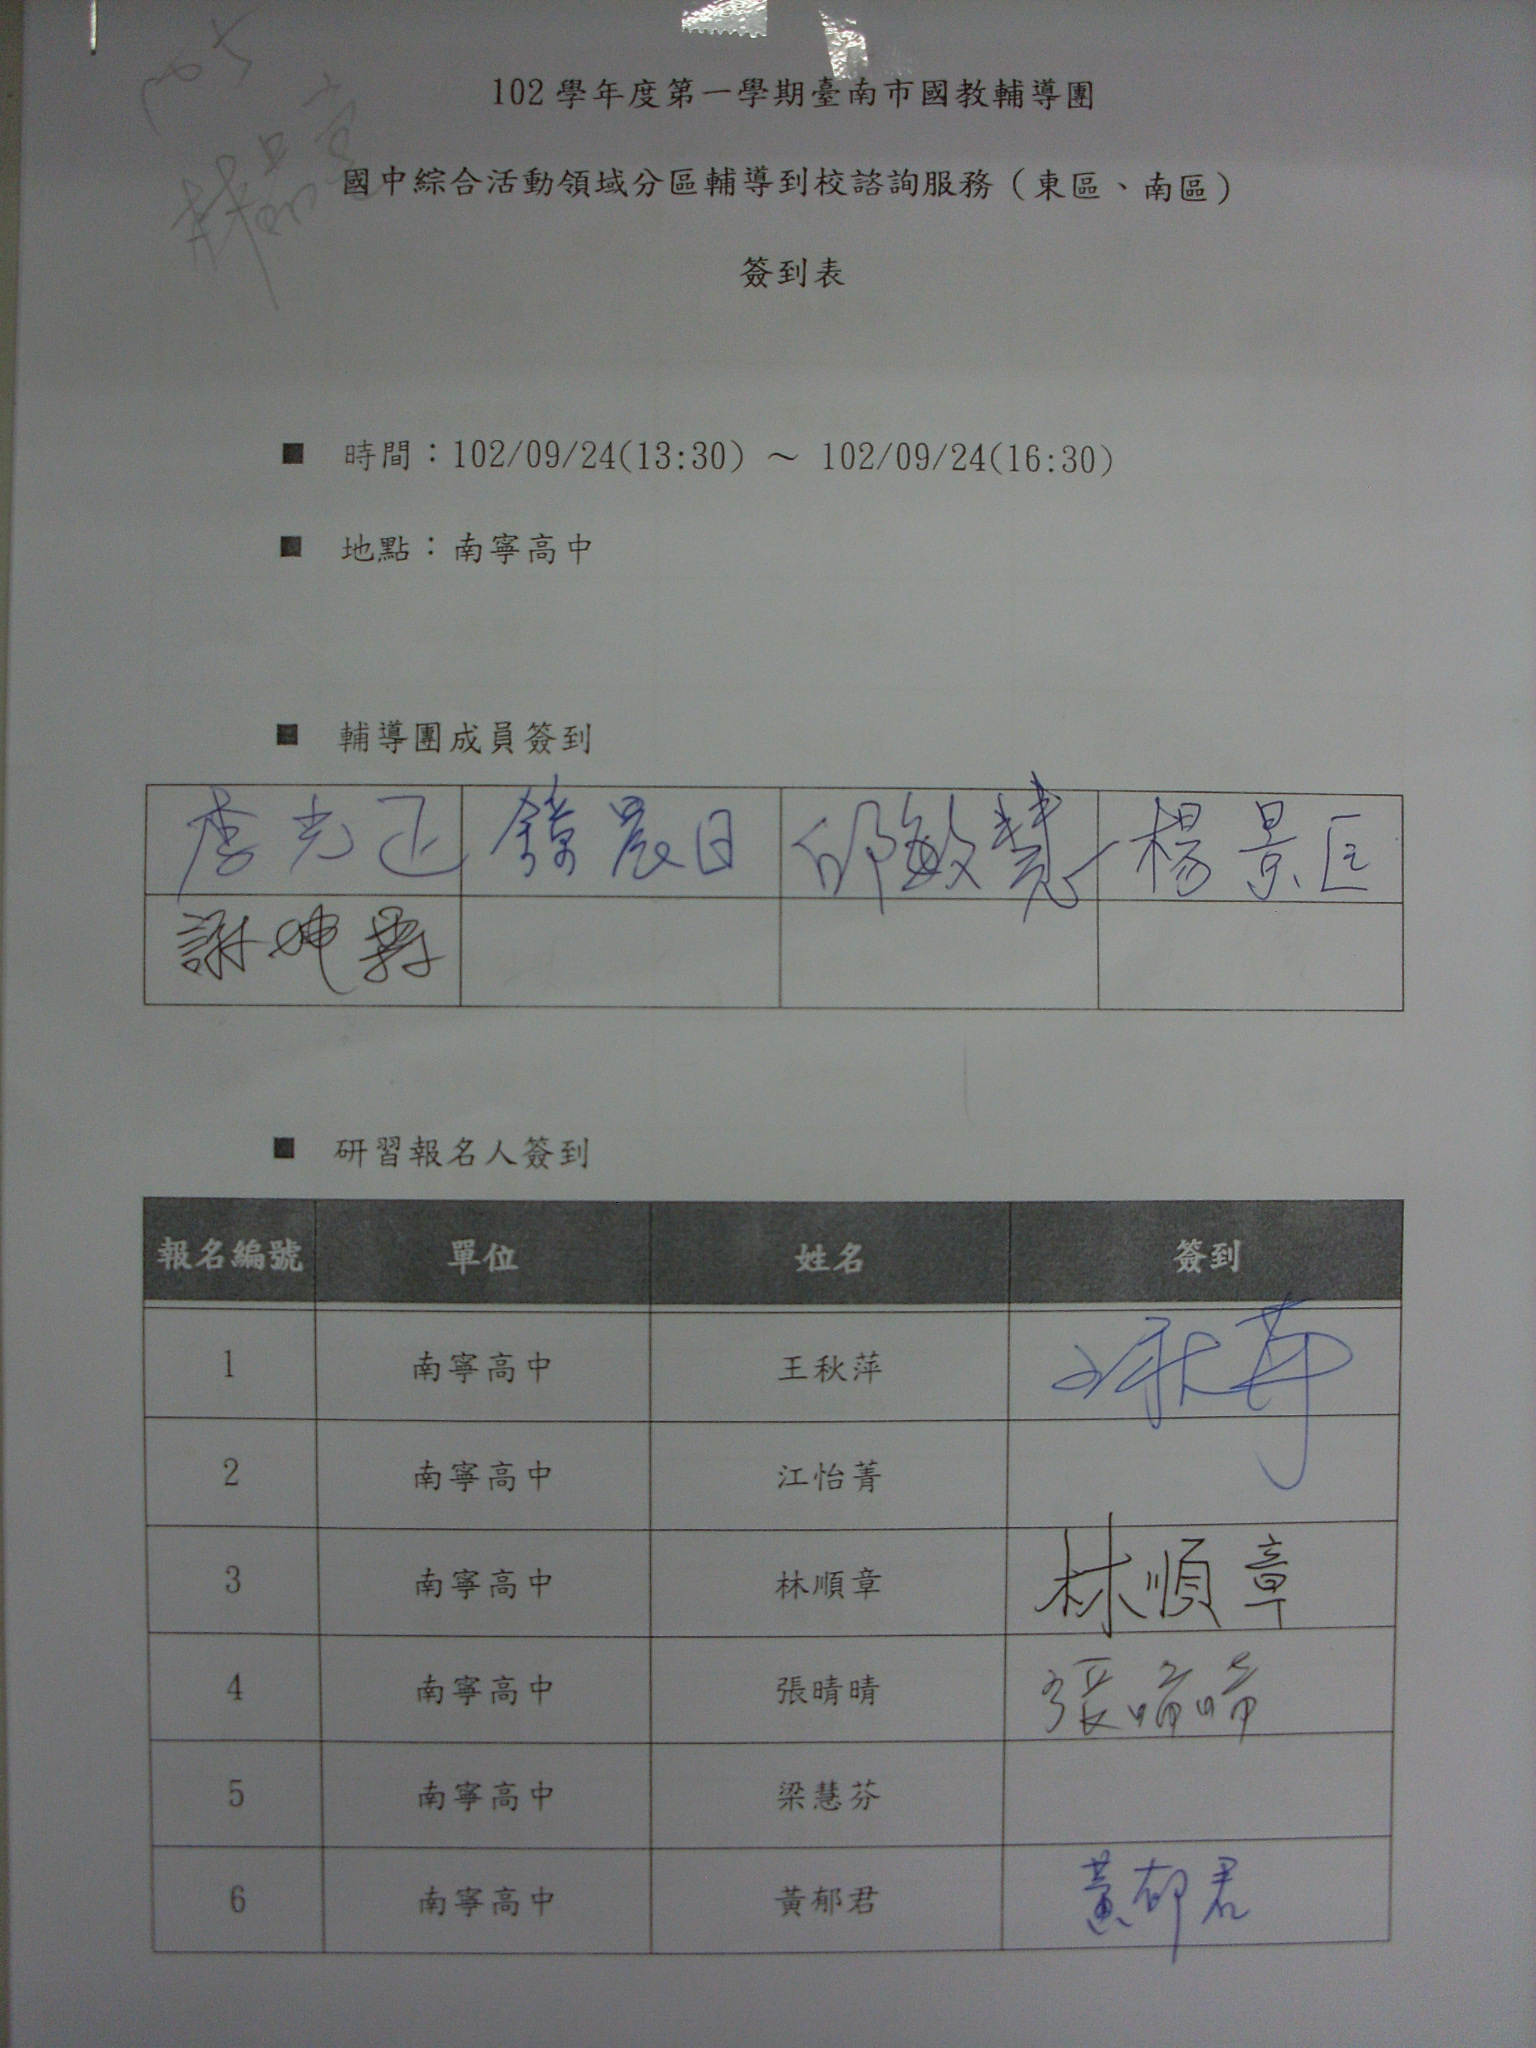 102學年度第一學期臺南市國教輔導團
國中綜合活動領域分區輔導到校諮詢服務（東區、南區）
簽到表
■ 時間：102/09/24(13:30) ～ 102/09/24(16:30)
■ 地點：南寧高中
■ 輔導團成員簽到
李光正 鐘晨日 邱敏慧 楊景匡
謝坤霖
■ 研習報名人簽到
報名編號 單位 姓名 簽到
1 南寧高中 王秋萍 王秋萍
2 南寧高中 江怡菁
3 南寧高中 林順章 林順章
4 南寧高中 張晴晴 張晴晴
5 南寧高中 梁慧芬
6 南寧高中 黃郁君 黃郁君